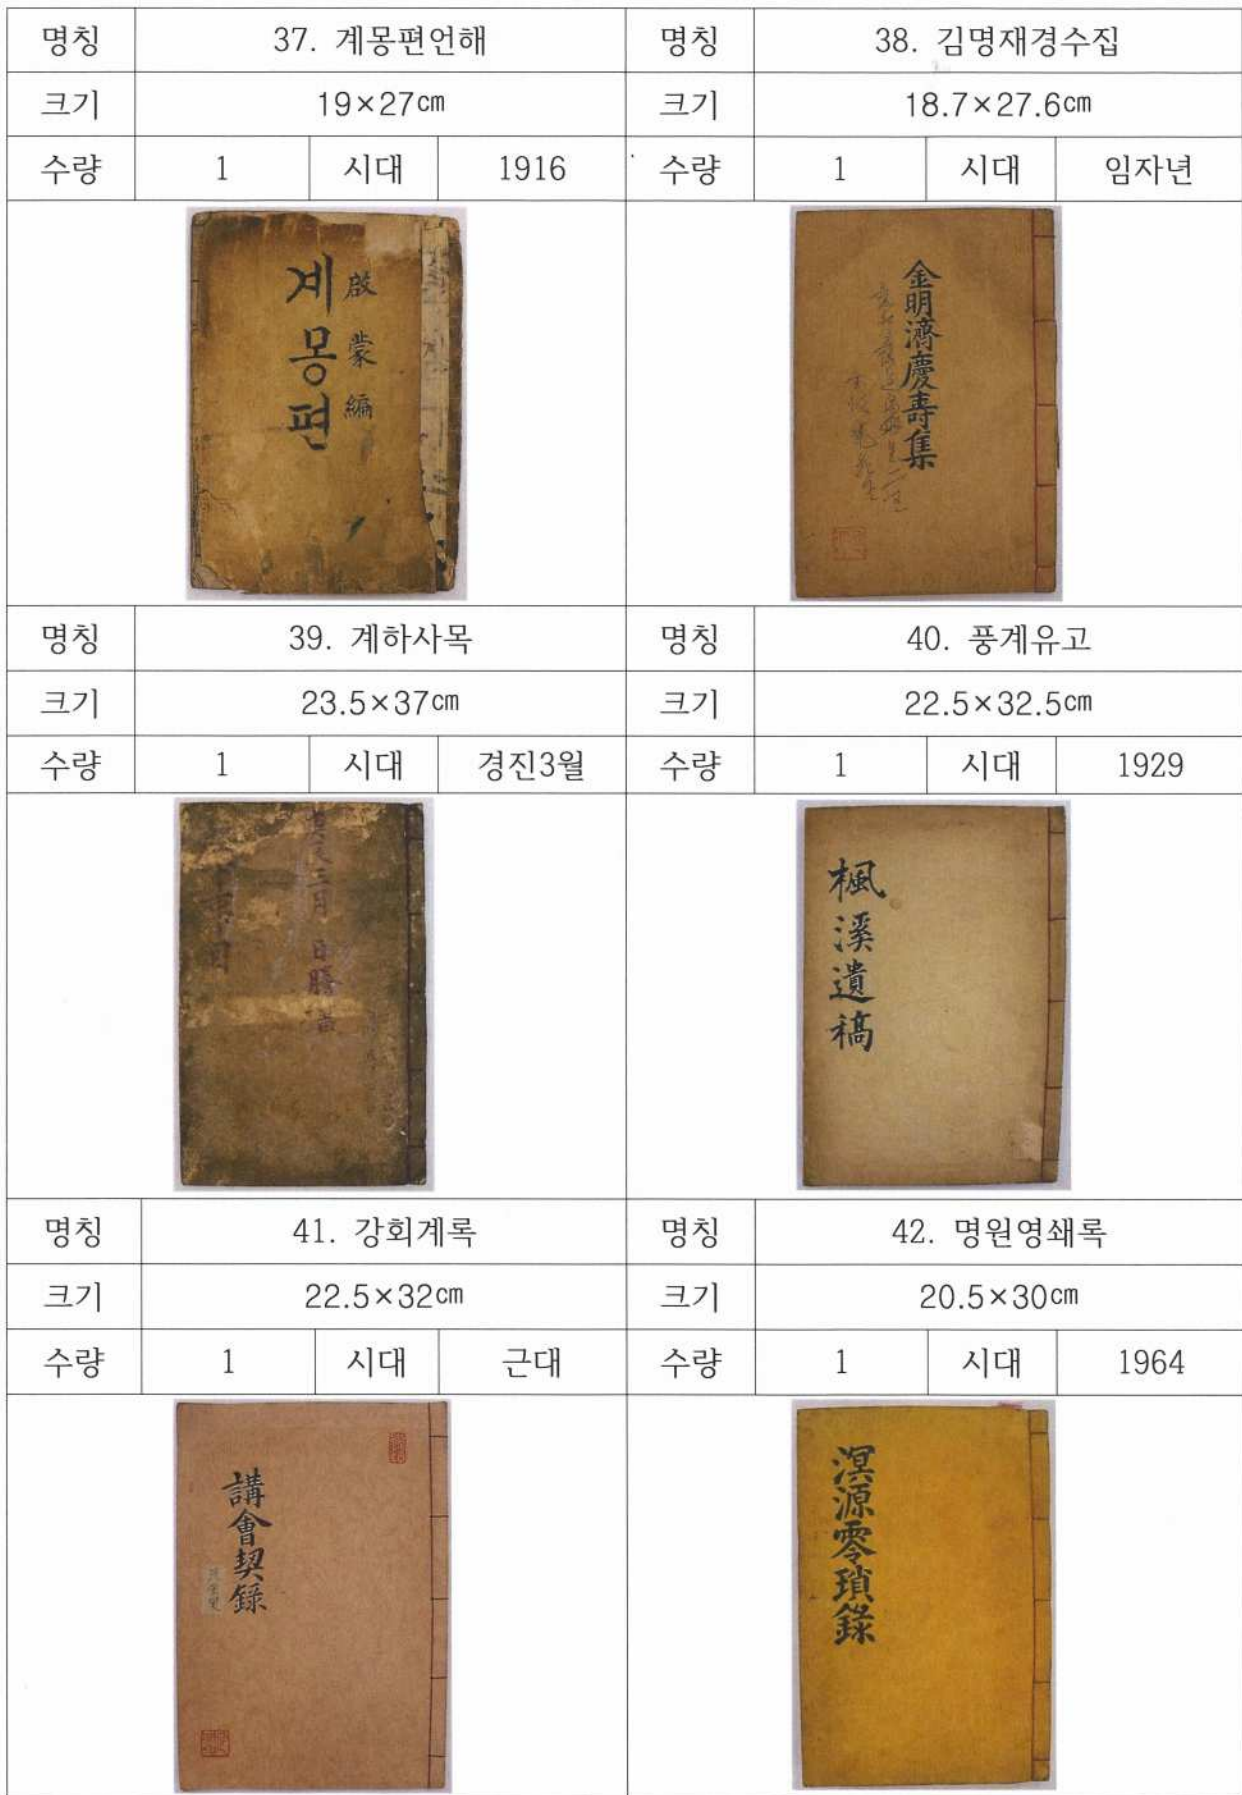 명칭 37. 계몽편언해 명칭 38. 김명재경수집
크기 19×27㎝ 크기 18.7×27.6㎝
수량 1 시대 1916 수량 1 시대 임자년
啟蒙編
계몽편
金明濟慶壽集
명칭 39. 계하사목 명칭 40. 풍계유고
크기 23.5×37㎝ 크기 22.5×32.5㎝
수량 1 시대 경진3월 수량 1 시대 1929
三月 日謄
楓溪遺稿
명칭 41. 강회계록 명칭 42. 명원영쇄록
크기 22.5×32㎝ 크기 20.5×30㎝
수량 1 시대 근대 수량 1 시대 1964
講會契錄
溟源零瑣錄